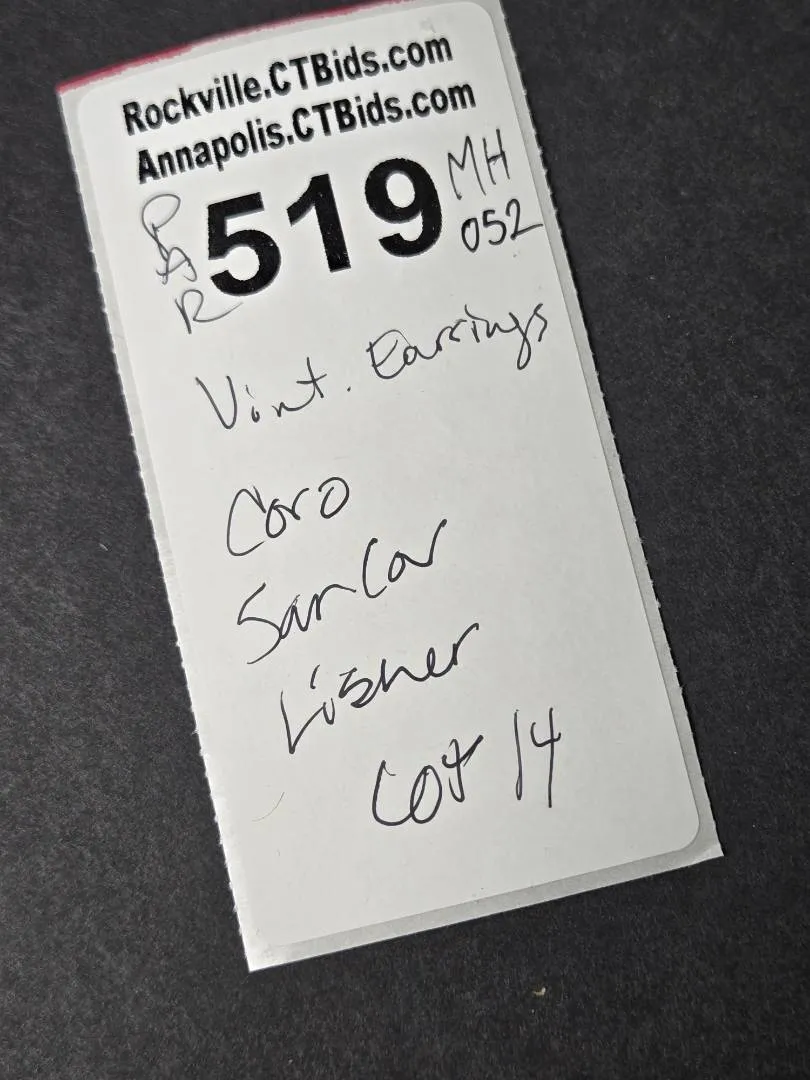 Rockville.CTBids.com
Annapolis.CTBids.com
PAR 519 MH
052
Vint. Earrings
Coro
SarCov
Lisner
Lot 14